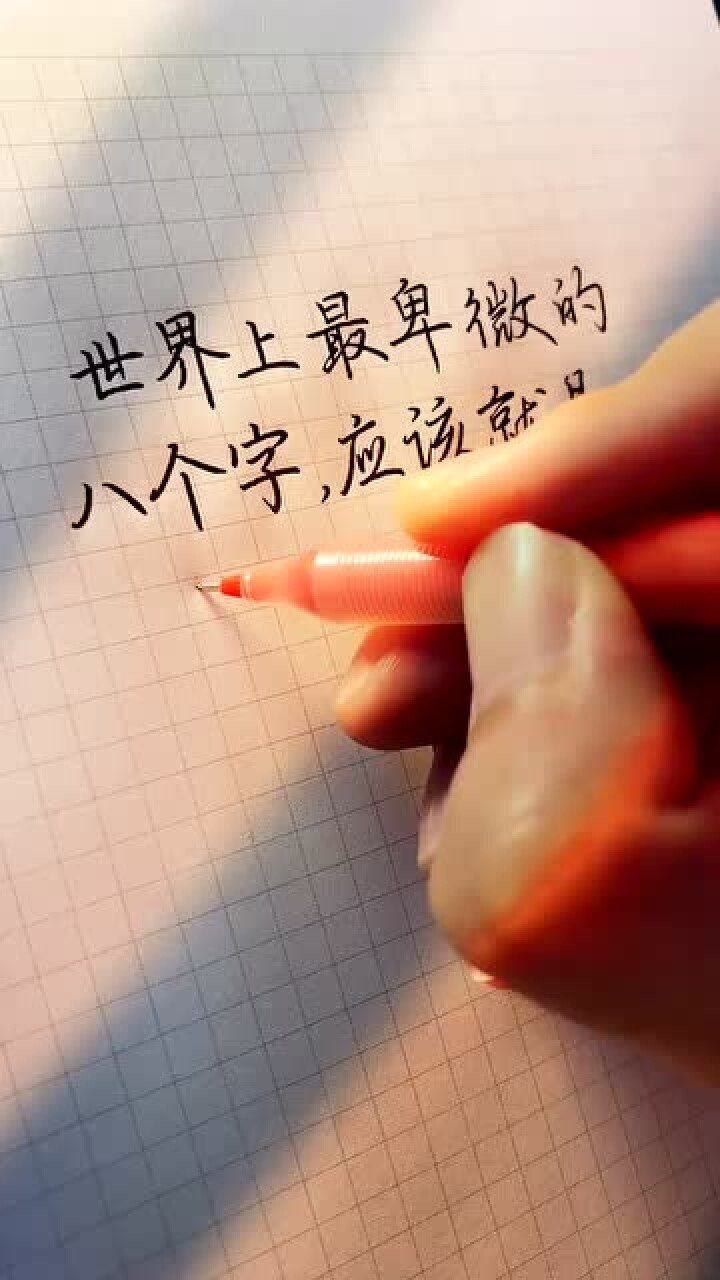 世界上最卑微的
八个字,应该就是